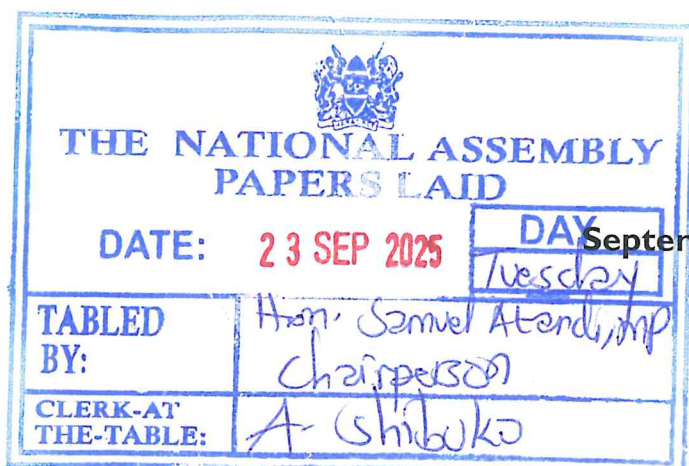 THE NATIONAL ASSEMBLY
PAPERS LAID
DATE: 23 SEP 2025 DAY
Septer
Tuesday
TABLED BY: Hon. Samuel Atandi, MP
Chairperson
CLERK-AT THE-TABLE: A. Shibuko